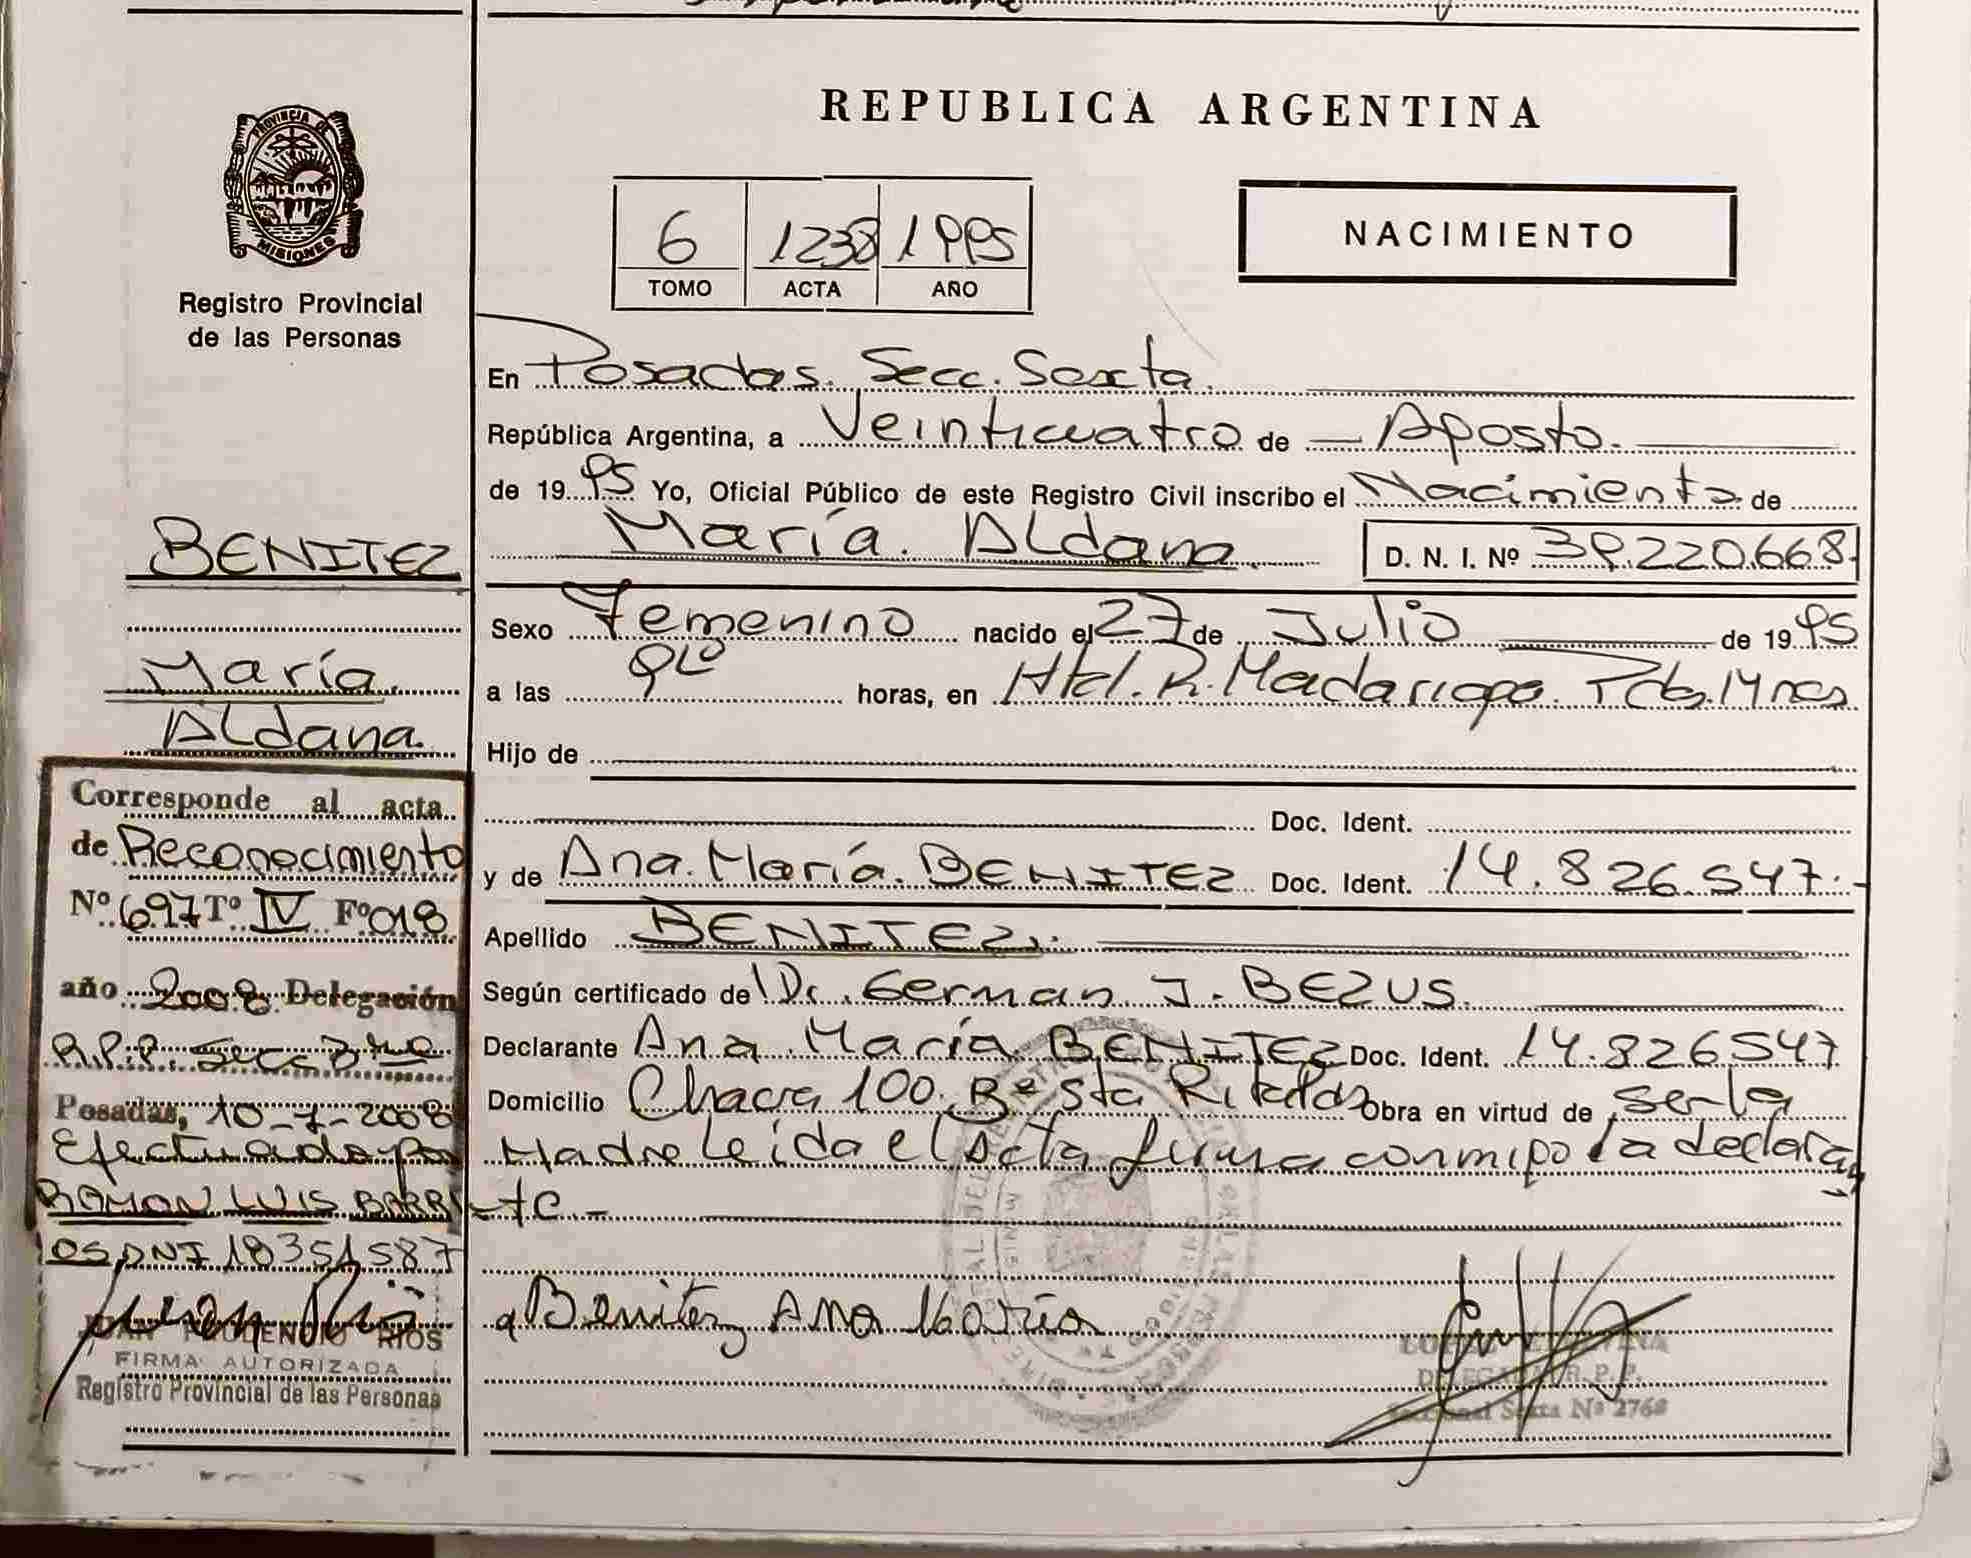 REPUBLICA ARGENTINA
PROVINCIA DE
MISIONES
Registro Provincial
de las Personas
6 1238 1995
TOMO ACTA AÑO
NACIMIENTO
En Posadas. Secc. Sexta.
República Argentina, a Veinticuatro de Agosto.
de 1995 Yo, Oficial Público de este Registro Civil inscribo el Nacimiento de
María. Aldana D. N. I. Nº 39.220.668.
Sexo Femenino nacido el 27 de Julio de 1995
a las horas, en Htal. R. Madariaga. Pdas. Mnes
Hijo de
Doc. Ident.
y de Ana. María. BENITEZ Doc. Ident. 14.826.547.
Apellido BENITEZ.
Según certificado de Dr. German J. BEZUS.
Declarante Ana María BENITEZ Doc. Ident. 14.826547
Domicilio Chacra 100. Bº Sta Rita Obra en virtud de ser la
Madre Leida el acta firma conmigo la declaran
te.-
Benitez Ana María
DELEGADA R. P. P.
Seccional Sexta Nº 2768
BENITEZ
María
Aldana.
Corresponde al acta
de Reconocimiento
Nº 697 Tº IV Fº 018
año 2008 Delegación
R.P.P. Secc
Posadas, 10-7-2008
Efectuado por
RAMON LUIS BARRI
OS DNI 18351587
JUAN PRUDENCIO RIOS
FIRMA AUTORIZADA
Registro Provincial de las Personas